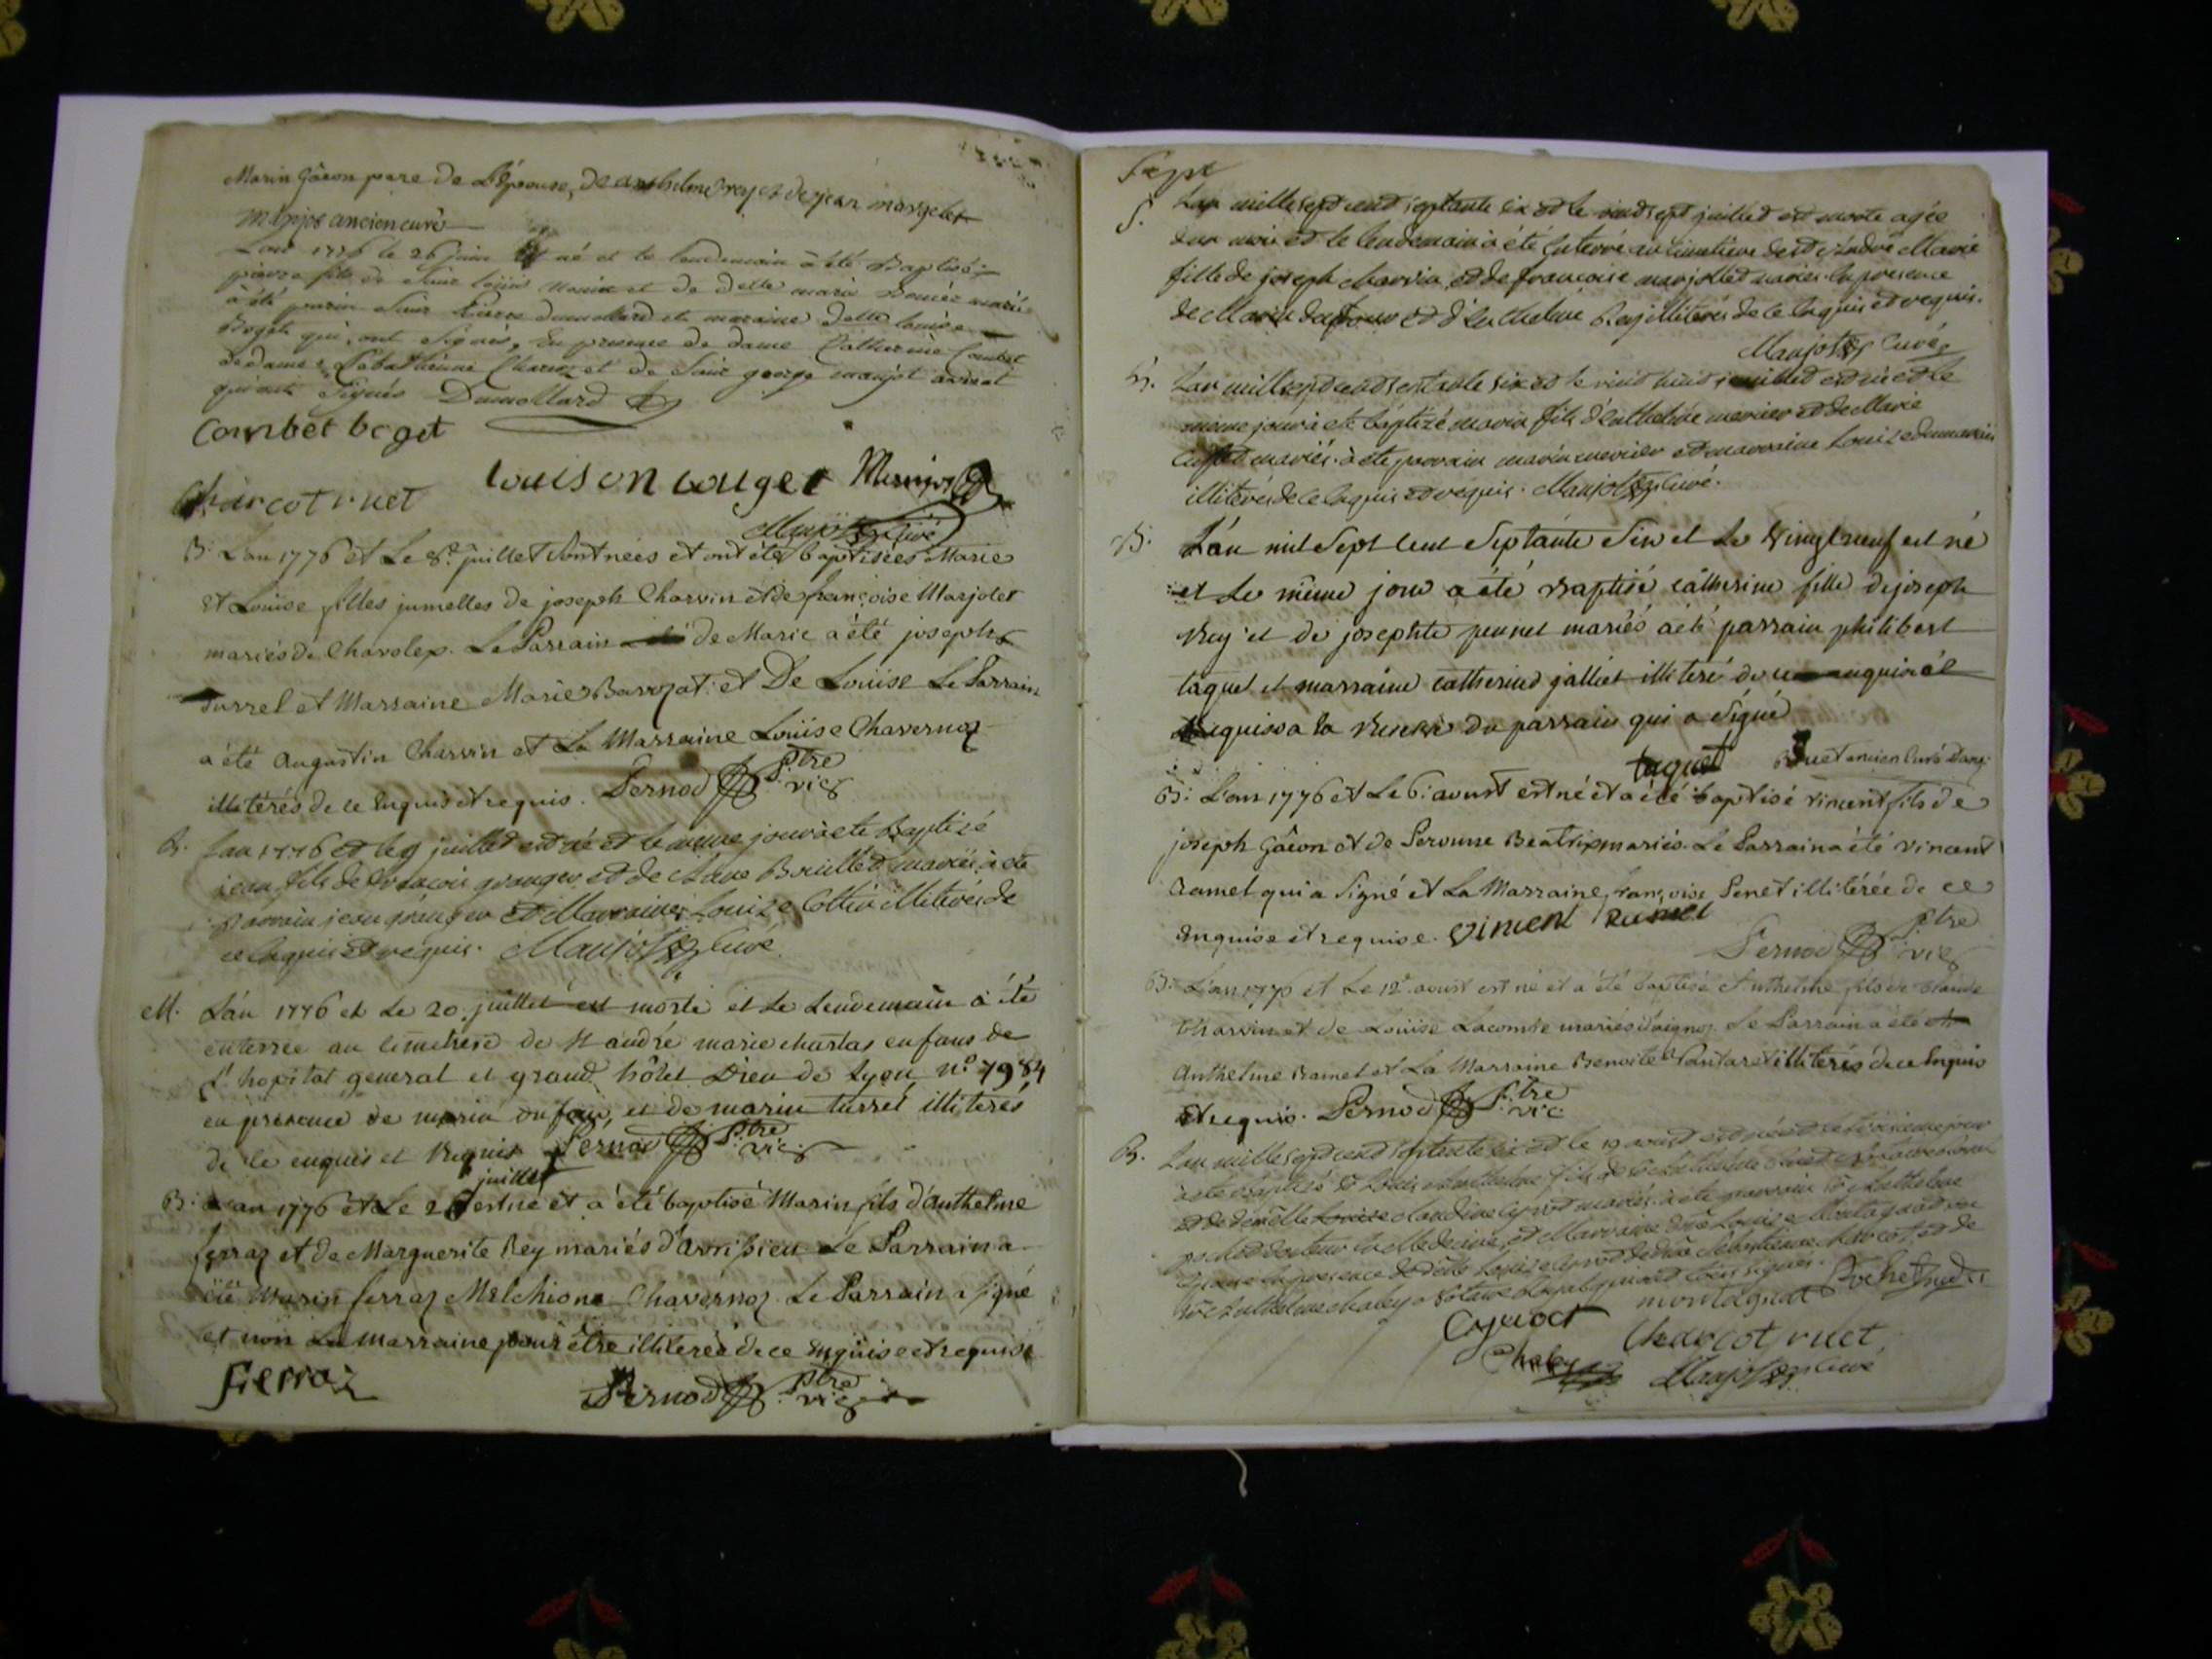 Marin Gâcon pere de L'Epouse, de anthelme rey et de jean margelet
manjot ancien curé
Lan 1776 le 26 juin est né et le lendemain à été Baptisé
pierre fils de Sieur et de delle marie mariés
à été parin Sieur Pierre Dumollard et maraine delle louise
Boget qui ont signés, En presence de dame Catherine Combet
de dame Sebathienne Charcot et de Sieur george manjot avocat
qui ont signés Dumollard
Combet boget
louison
Charcot ruet
Manjot Curé
B. L'an 1776 et Le 8e juillet sont nées et ont été baptisées Marie
et Louise filles jumelles de joseph Charvin et de françoise Marjolet
mariés de Charolep. Le Parrain de Marie a été joseph
Turrel et Marraine Marie et De Louise Le Parrain
a été Augustin Charvin et La Marraine Louise Chavernoz
illiterés de ce Enquis et requis. Pernod Ptre vic
B. Lan 1776 et le 9 juillet est né et le meme jour à ete Baptizé
jean fils de francois granger et de mariés à ete
parrain jean granger et Marraine Louize Collin illiterés de
ce Enquis et requis. Manjot Curé
M. L'an 1776 et Le 20 juillet est morte et Le Lendemain à été
enterrée au cimetiere de St andré marie chartas enfans de
L'hopital general et grand hôtel Dieu de Lyon n° 7984
en présence de marin dufour et de marin turrel illiterés
de ce enquis et Requis Pernod Ptre vic
juillet
B. L'an 1776 et Le 26 est né et a été baptisé Marin fils d'Anthelme
ferraz et de Marguerite Rey mariés d'Arripieu Le Parrain a
été Marin ferraz Melchione Chavernoz. Le Parrain a signé
et non La marraine pour être illiterée de ce enquise et requise
Fierraz Pernod Ptre vic
Sept
S. Lan mille sept cent septante six et le vint sept juillet est morte agée
dun mois et le lendemain à été Enterré au cimetiere de st André Marie
fille de joseph charvin et de francoise marjollet mariés. En presence
de Marin dufour et d'Enthelme Rey illiterés de ce Enquis et requis.
Manjot Curé
B. Lan mille sept cent septante six et le vint huit juillet est né et le
meme jour à ete baptizé marin fils d'Enthelme mercier et de Marie
mariés. à ete parrain marin mercier et marraine Louize
illiterés de ce Enquis et requis. Manjot Curé.
B. L'an mil Sept Cent Septante Six et Le Vingt neuf est né
et Le même jour a été Baptisé catherine fille de joseph
Rey et de josephte peunet mariés a été parrain philibert
taquet et marraine catherine galliet illiteré de ce enquis et
Requis a la Reserve du parrain qui a Signé
taquet Ruet ancien Curé
B. L'an 1776 et Le 6e aoust est né et a été baptisé vincent fils de
joseph Gâcon et de Peronne Beatrix mariés. Le Parrain a été vincent
Ramel qui a Signé et La Marraine françoise Penet illitérée de ce
Enquise et requise. vincent Ramel
Pernod Ptre vic
B. L'an 1776 et Le 12e aoust est né et a été baptisé Anthelme fils de Claude
Charvin et de Louise Lacombe mariés d'aignoz. Le Parrain a été
Anthelme Ramel et La Marraine Benoite Pantaret illiterés de ce Enquis
et requis. Pernod Ptre vic.
B. Lan mille sept cent septante six et le 19 aout est né et le troisieme jour
à ete Baptizé Sr Louis Anthelme fils de
et de demlle claudine cyvoct mariés. à ete parrain Sr Anthelme
docteur en Medecine, et Marraine dme Louize Montagnat
En presence de delle Louize cyvoct de dme Sebastienne charcot, et de
Sr Anthelme chaley Notaire Royal qui ont tous signés. Rochefred
montagnat
Cyvoct Charcot ruet
Chaley Manjot Curé